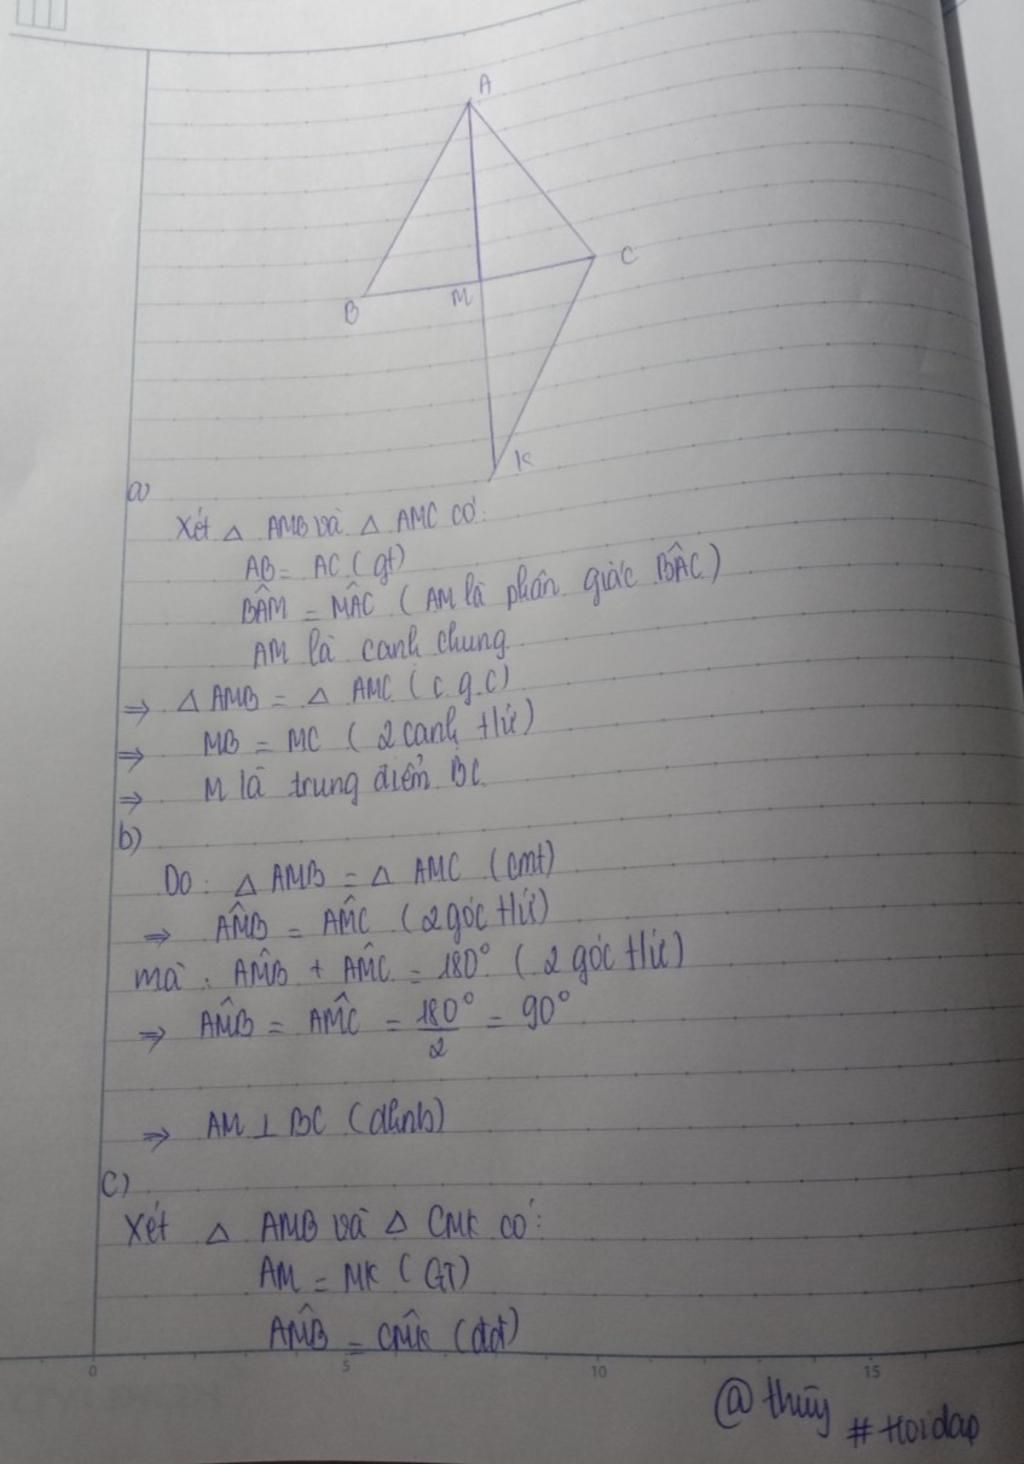 A
B
M
C
K
a)
Xét △ AMB và △ AMC có:
AB = AC (gt)
BÂM = MÂC (AM là phân giác BÂC)
AM là cạnh chung
⇒ △ AMB = △ AMC (c.g.c)
⇒ MB = MC (2 cạnh tứ)
⇒ M là trung điểm BC
b)
Do: △ AMB = △ AMC (cmt)
⇒ AM̂B = AM̂C (2 góc tứ)
mà: AM̂B + AM̂C = 180° (2 góc tứ)
⇒ AM̂B = AM̂C = 180°/2 = 90°
⇒ AM ⊥ BC (đhnb)
c)
Xét △ AMB và △ CMK có:
AM = MK (GT)
AM̂B = CM̂K (đđ)
0 5 10 15
@thùy #Hoidap